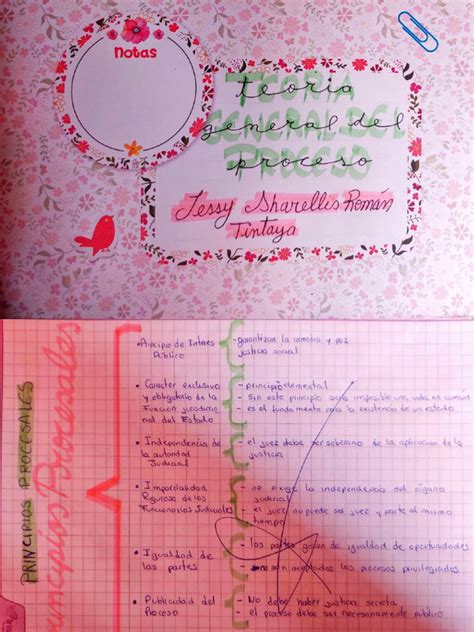 notas
teoria
general del
proceso
Jessy Sharellis Román
Tintaya
PRINCIPIOS PROCESALES
Principios Procesales
• Principio de Interés
Público
- garantizan la armonía y paz
justicia social
• Carácter exclusivo
y obligatorio de la
Funcion jurisdiccio
nal del Estado
- principio elemental
- Sin este principio seria imposible una vida en comun
- es el fundamento para la existencia de un estado
• Independencia de
la autoridad
Judicial
- el juez debe ser soberano de la aplicacion de la
justicia
• Imparcialidad
Rigurosa de los
Funcionarios Judiciales
- se exige la independencia del órgano
judicial
- el juez no puede ser juez y parte al mismo
tiempo
• Igualdad de
las partes
- las partes gozan de igualdad de oportunidades
- son aceptados los procesos privilegiados
• Publicidad del
Proceso
- No debe haber justicia secreta
- el proceso debe ser necesariamente público